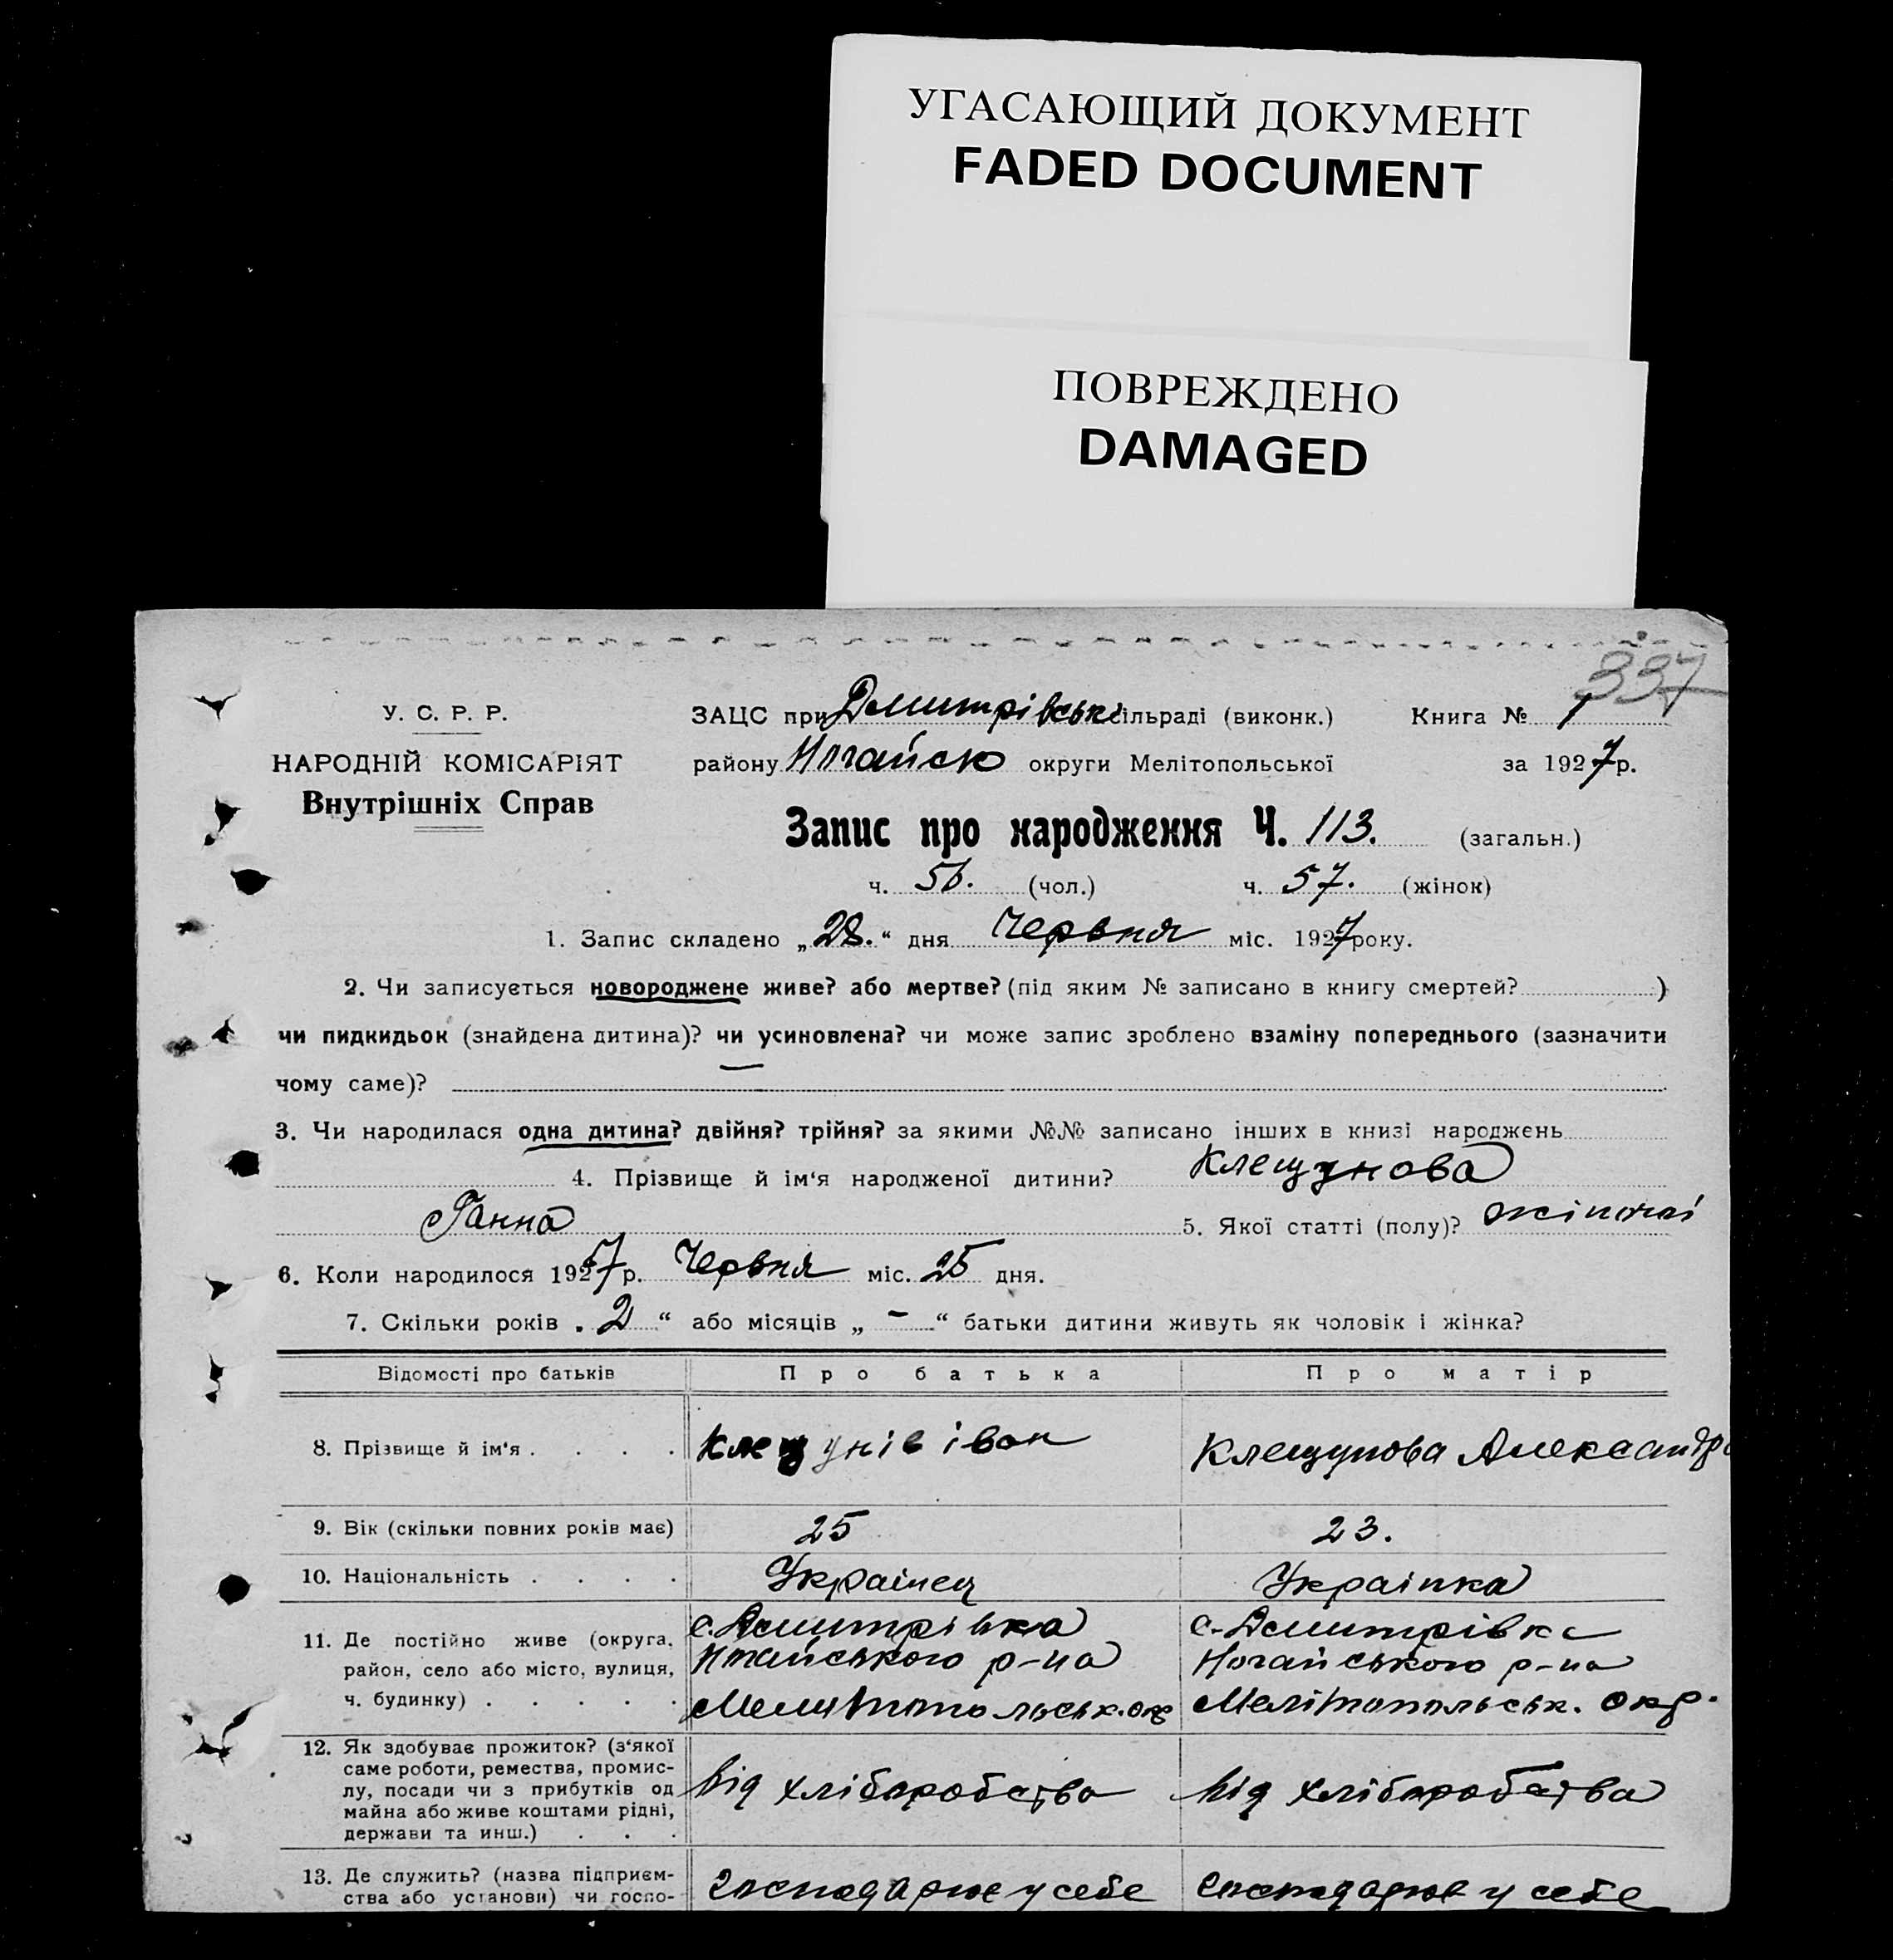 УГАСАЮЩИЙ ДОКУМЕНТ
FADED DOCUMENT
ПОВРЕЖДЕНО
DAMAGED
337
У. С. Р. Р.
НАРОДНІЙ КОМІСАРІЯТ
Внутрішніх Справ
ЗАЦС при Дмитрівські сільраді (виконк.) Книга № 1
району Ногайськ округи Мелітопольської за 1927 р.
Запис про народження Ч. 113. (загальн.)
ч. 56. (чол.) ч. 57. (жінок)
1. Запис складено „28.“ дня Червня міс. 1927 року.
2. Чи записується новороджене живе? або мертве? (під яким № записано в книгу смертей? )
чи пидкидьок (знайдена дитина)? чи усиновлена? чи може запис зроблено взаміну попереднього (зазначити
чому саме)? —
3. Чи народилася одна дитина? двійня? трійня? за якими №№ записано інших в книзі народжень
4. Прізвище й ім‘я народженої дитини? Клещунова
Ганна 5. Якої статті (полу)? жіночої
6. Коли народилося 1927 р. Червня міс. 25 дня.
7. Скільки років „2“ або місяців „ – “ батьки дитини живуть як чоловік і жінка?
Відомості про батьків Про батька Про матір
8. Прізвище й ім‘я . . . . Клещунів іван Клещунова Александра
9. Вік (скільки повних років має) 25 23.
10. Національність . . . . Українец Українка
11. Де постійно живе (округа, район, село або місто, вулиця, ч. будинку) . . . . .
с. Дмитрівка
Ногайського р-на
Мелитопольськ. окр
с. Дмитрівка
Ногайського р-на
Мелітопольськ. окр.
12. Як здобуває прожиток? (з‘якої
саме роботи, ремества, промис-
лу, посади чи з прибутків од
майна або живе коштами рідні,
держави та инш.) . . .
від хліборобства від хліборобства
13. Де служить? (назва підприєм-
ства або установи) чи госпо-
господарює у себе господарює у себе